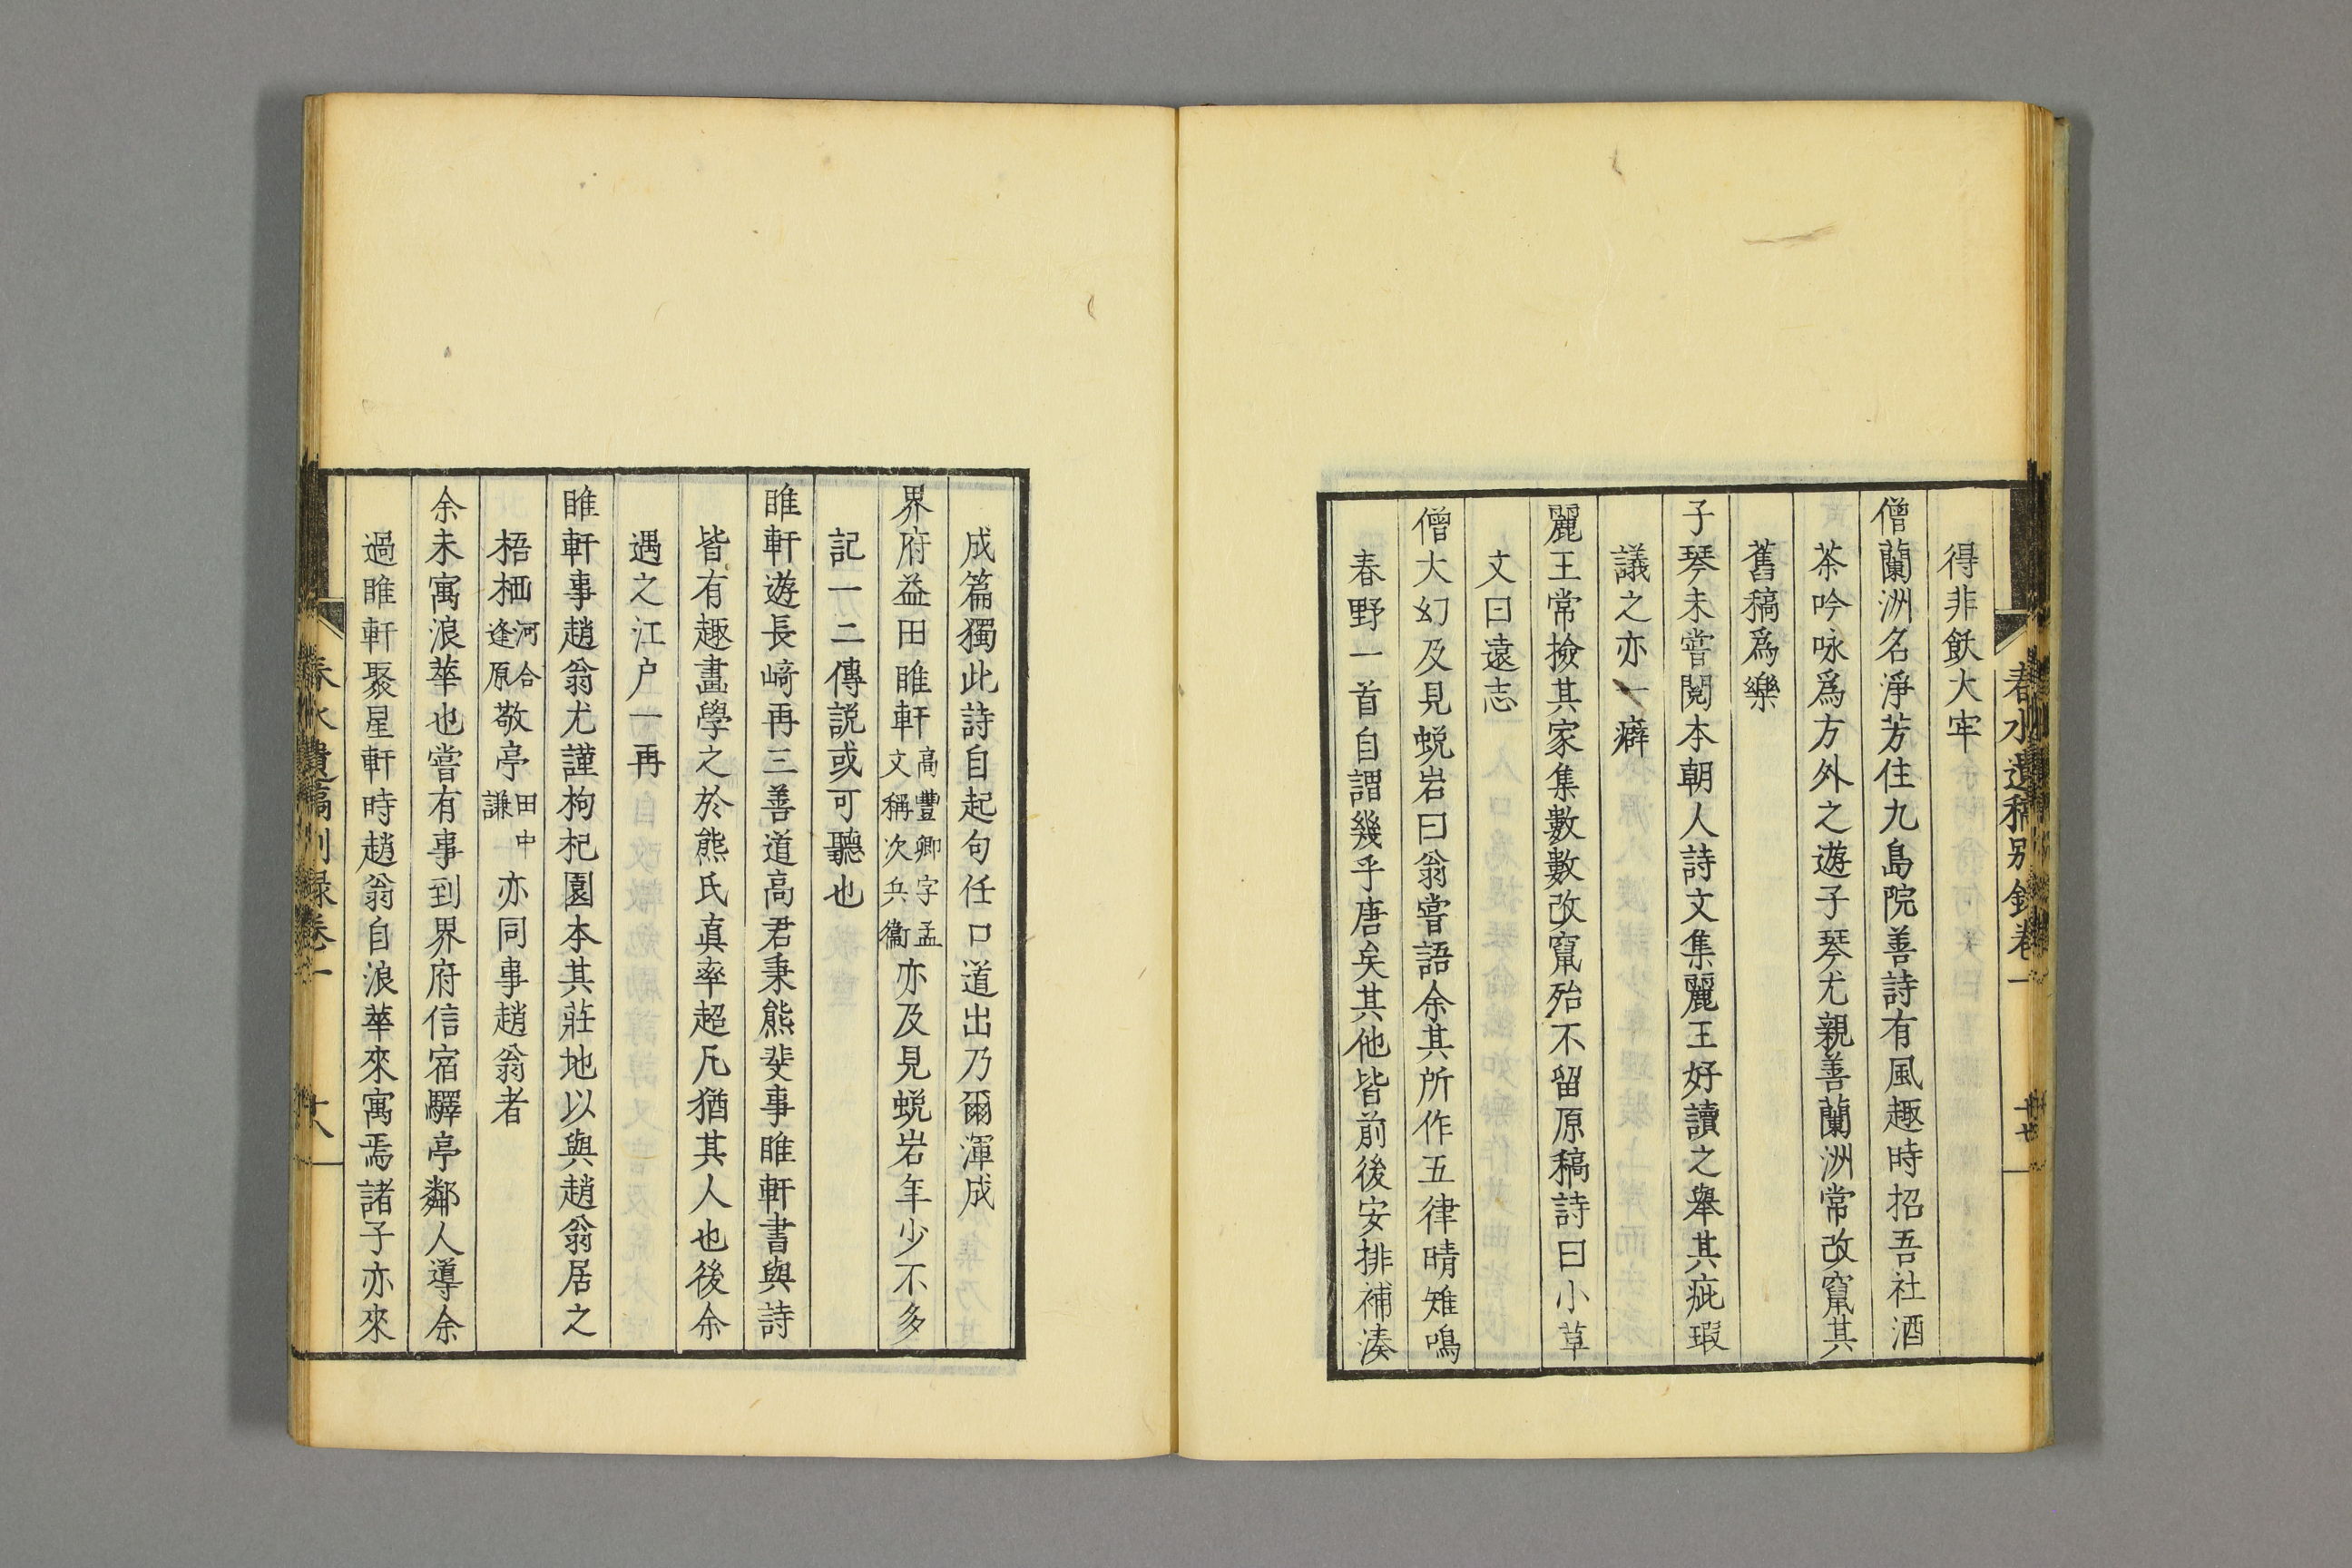 春水遺稿別録卷一
十七
得非飫大牢
僧蘭洲名淨芳住九島院善詩有風趣時招吾社酒
茶吟咏爲方外之遊子琴尤親善蘭洲常改竄其
舊稿爲樂
子琴未嘗閱本朝人詩文集麗王好讀之舉其疵瑕
議之亦一癖
麗王常撿其家集數數改竄殆不留原稿詩曰小草
文曰遠志
僧大幻及見蛻岩曰翁嘗語余其所作五律晴雉鳴
春野一首自謂幾乎唐矣其他皆前後安排補湊
成篇獨此詩自起句任口道出乃爾渾成
界府益田睢軒高豐卿字孟文稱次兵衞亦及見蛻岩年少不多
記一二傳説或可聽也
睢軒遊長﨑再三善道高君秉熊斐事睢軒書與詩
皆有趣畫學之於熊氏真率超凡猶其人也後余
遇之江户一再
睢軒事趙翁尤謹枸杞園本其莊地以與趙翁居之
梧栖河合逢原敬亭田中謙亦同事趙翁者
余未寓浪華也嘗有事到界府信宿驛亭鄰人導余
過睢軒聚星軒時趙翁自浪華來寓焉諸子亦來
春水遺稿別録卷一
十八